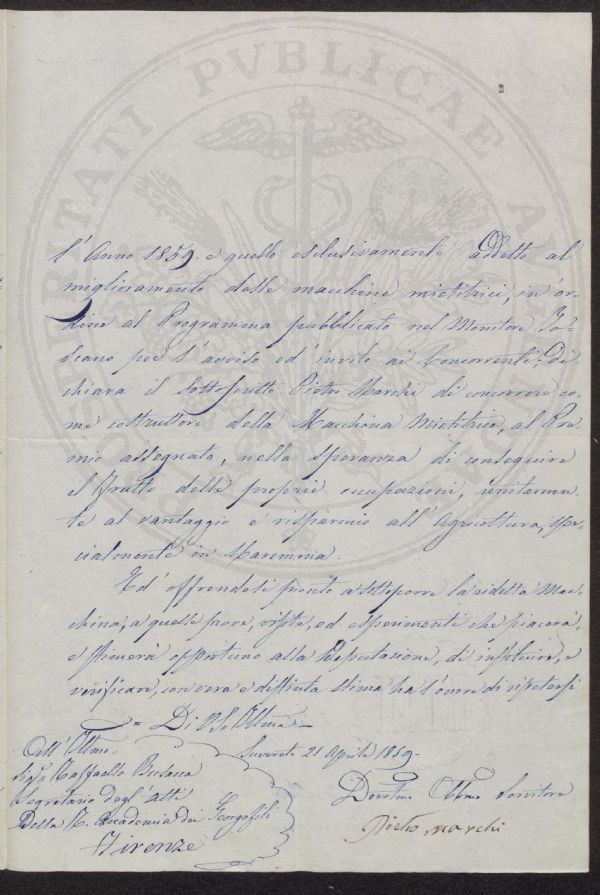 PROSPERITATI PUBLICAE AUGENDAE
l'Anno 1859. e quello esclusivamente addetto al
miglioramento delle macchine mietitrici, in or-
dine al Programma pubblicato nel Monitore To-
scano per l'avviso ed' invito ai Concorrenti; Di-
chiara il Sottoscritto Pietro Marchi di concorrere co-
me costruttore della Macchina Mietitrice, al Pre-
mio assegnato, nella Speranza di conseguire
il frutto delle proprie occupazioni, unitamen-
te al vantaggio e risparmio all' Agricoltura, spe-
cialmente in Maremma.
Ed' offrendosi pronto a sottoporre la ridetta Mac-
china, a quelle prove, visite, ed esperimenti che piacerà,
e stimerà opportuno alla Deputazione, di instituire, e
verificare, con vera e distinta stima ha l'onore di ripetersi
= Di V. S. Illma =
Suvereto 21 Aprile 1859.
All' Illmo
Sigr Raffaello Busacca
Segretario degl' Atti
Della R. Accademia dei Georgofili
Firenze
Devotmo Obbmo Servitore
Pietro Marchi